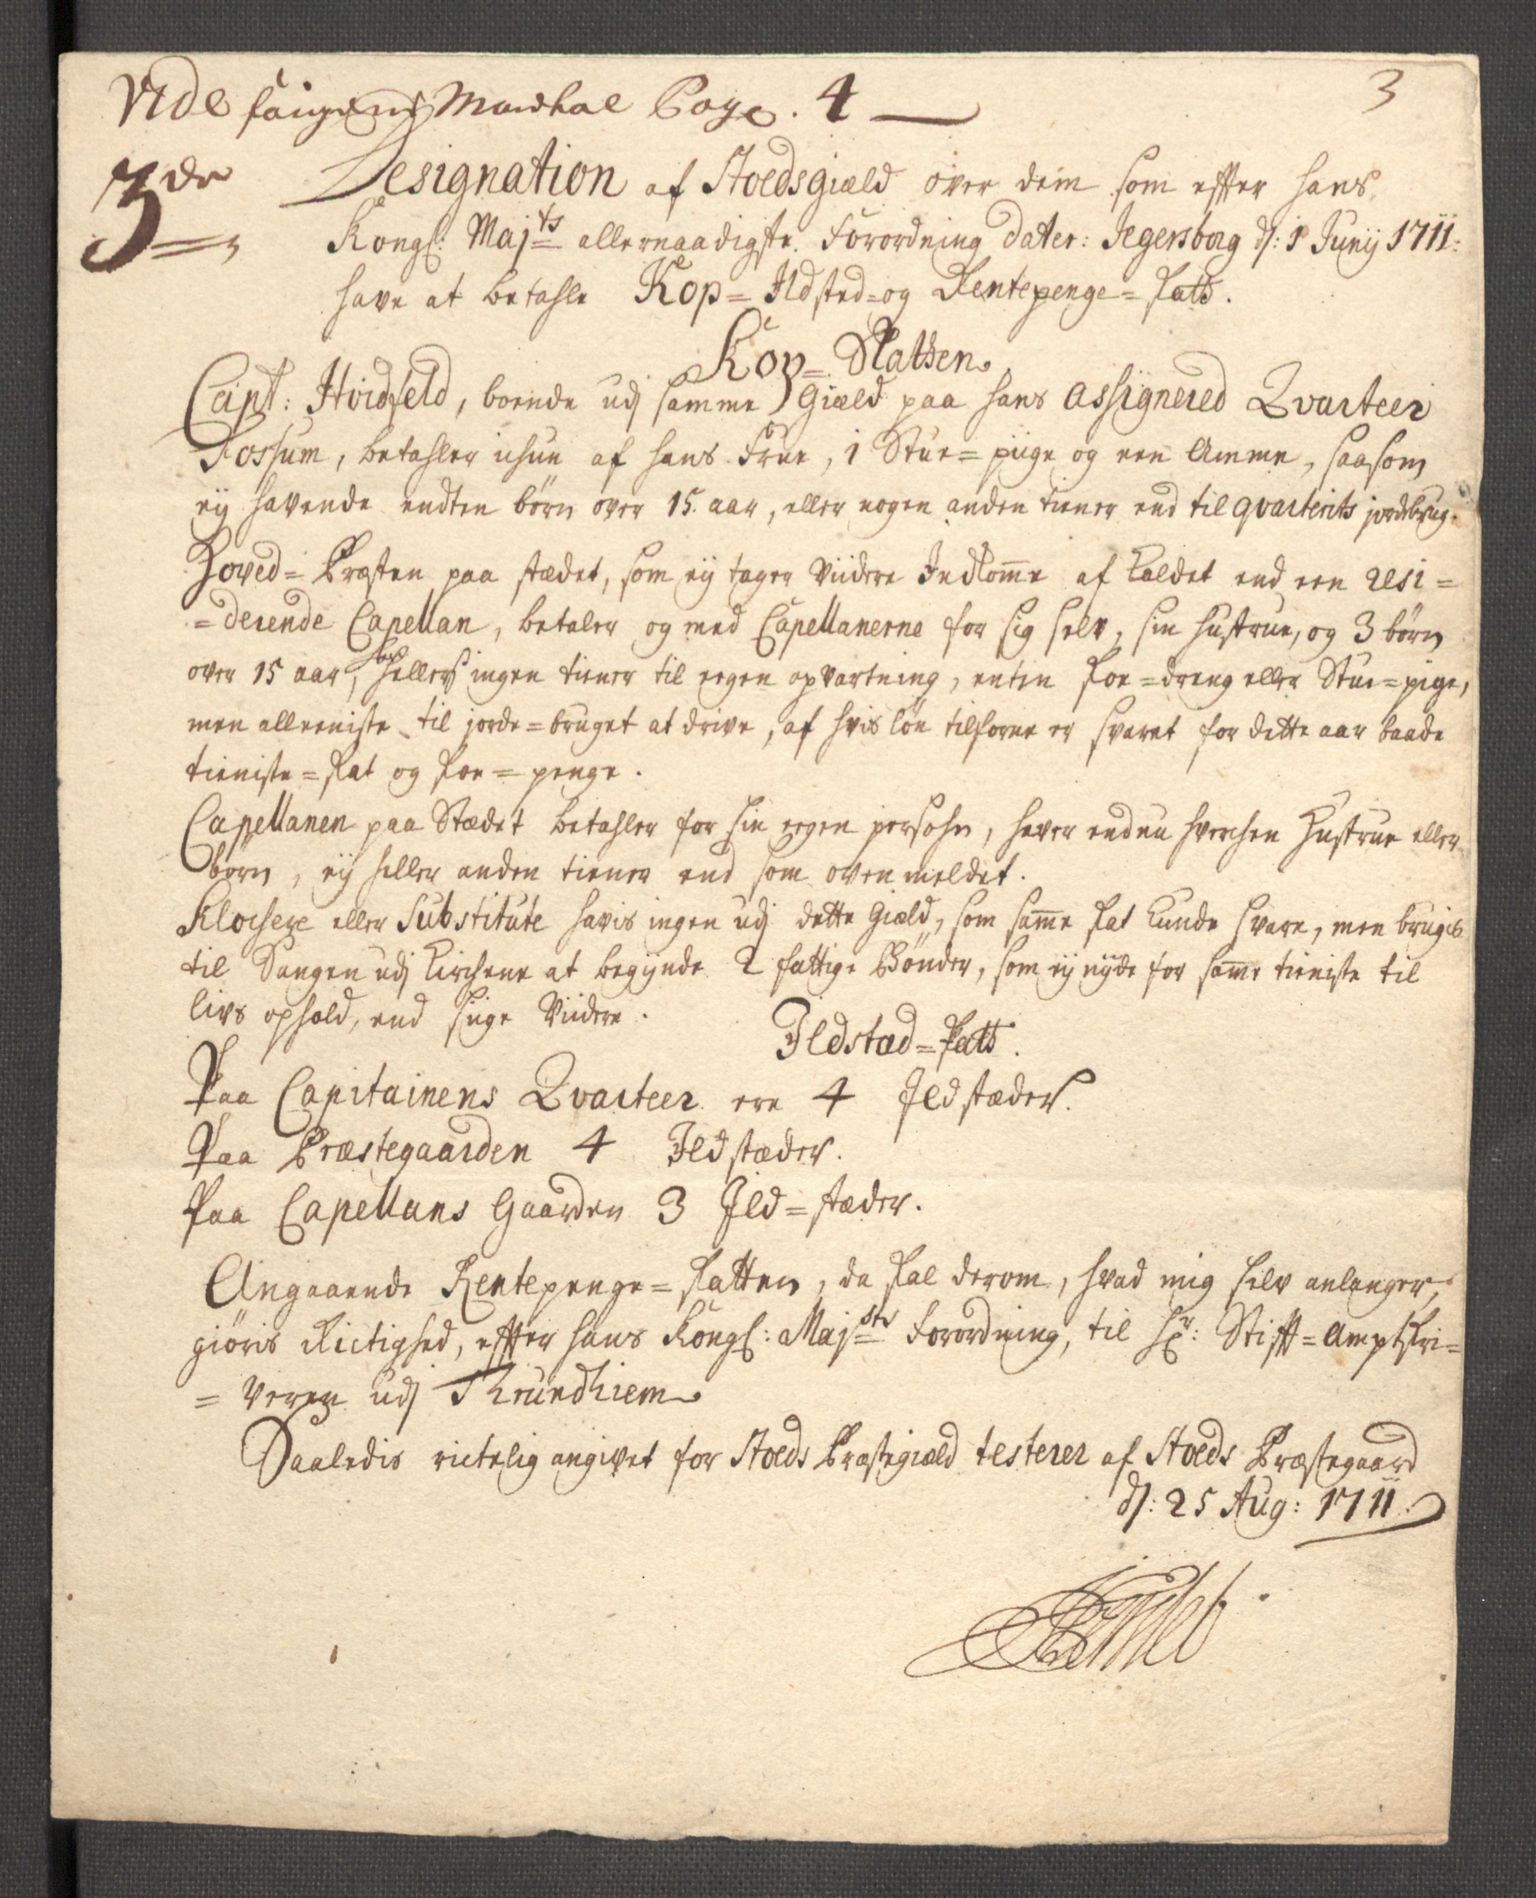 Vide Mandtal Pag. 4
3
3die
Designation af Stoedsgiæld over dem som efter hans
Kongl: Majts allernaadigste Forordning dater: Jegersborg d: 1 Junij 1711:
have at betahle Kop= Ildsted= og Rentepenge= skatt.
Kop= Skatten
Capt: Hvidfeld, boende udj samme Giæld paa hans assignered Qvarteer
Fossum, betahler ichun af hans Frue, 1 Stue= piige og een Amme, saasom
ey havende endten børn over 15. aar, eller nogen anden tiener end til qvarterits jordebrug.
Hoved= Præsten paa stædet, som ey tager viidere Indkomme af Kaldet end een resi=
=derende Capellan, betaler og med Capellanerne for sig selv, sin hustrue, og 3 børn
over 15 aar, hellers ingen tiener til eegen opvartning, enten skoe=dreng eller Stue=pige,
men alleeniste til jorde=bruget at drive, af hvis løn tilforne er svaret for dette aar baade
tieniste=skat og skoe=penge.
Capellanen paa Stædet betahler for sin eegen persohn, haver endnu hverchen Hustrue eller
børn, ey heller anden tiener end som ovenmeldet.
Klochere eller Substitute havis ingen udj dette Giæld, som samme skat kunde svare, men brugis
til Sangen udj Kirchene at begynde 2 fattige Bønder, som ey nyde for samme tieniste til
livs ophold, end siige viidere.
Ildstæd=skatt.
Paa Capitainens Qvarteer ere 4 Ildstæder.
Paa Præstegaarden 4 Ildstæder.
Paa Capellans Gaarden 3 Ild=stæder.
Angaaende Rentepenge=skatten, da skal derom, hvad mig selv anlanger,
giøris Rictighed, efter hans Kongl: Majsts Forordning, til Hr: Stifft=Amptskri=
=veren udj Thrundhiem
Saaledis rictelig angivet for Stoeds Præstegiæld testerer af Stoeds Præstegaard
d: 25 Aug: 1711.